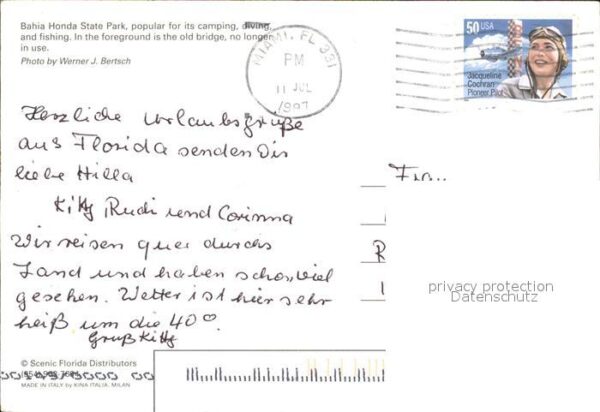 Bahia Honda State Park, popular for its camping, diving,
and fishing. In the foreground is the old bridge, no longer
in use.
Photo by Werner J. Bertsch
MIAMI, FL 331
PM
11 JUL
1997
50 USA
Jacqueline
Cochran
Pioneer Pilot
Herzliche Urlaubsgrüße
aus Florida senden Dir
liebe Hilla
Kitty Rudi und Corinna
Wir reisen quer durchs
Land und haben schon viel
gesehen. Wetter ist hier sehr
heiß um die 40°.
Gruß Kitty
privacy protection
Datenschutz
© Scenic Florida Distributors
MADE IN ITALY by KINA ITALIA, MILAN